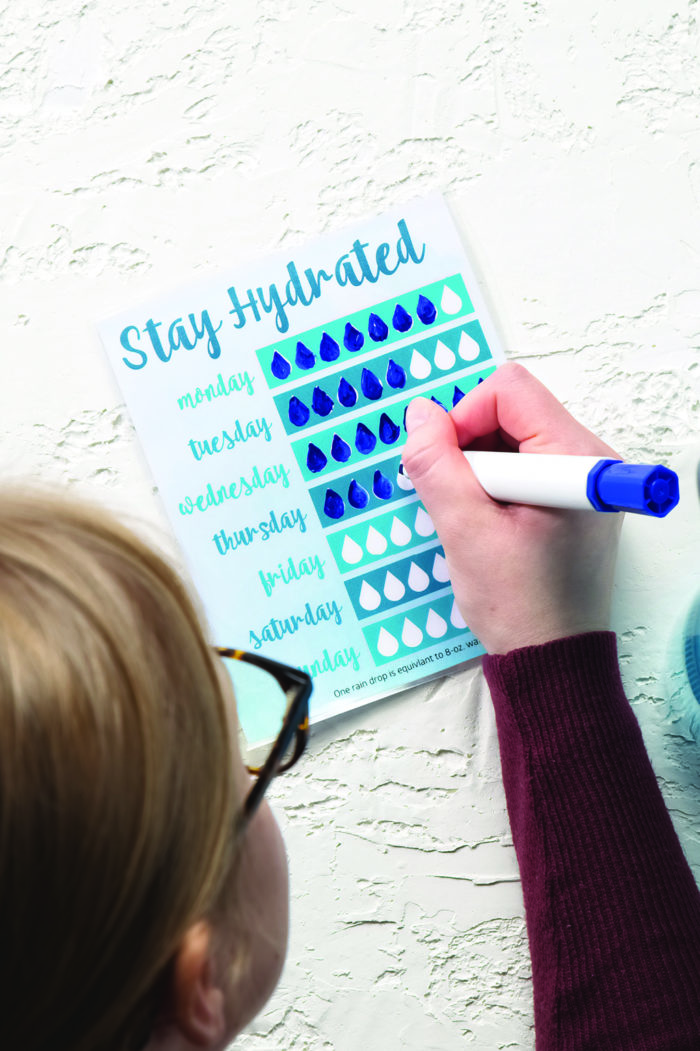 Stay Hydrated
monday
tuesday
wednesday
thursday
friday
saturday
One rain drop is equivlant to 8-oz.